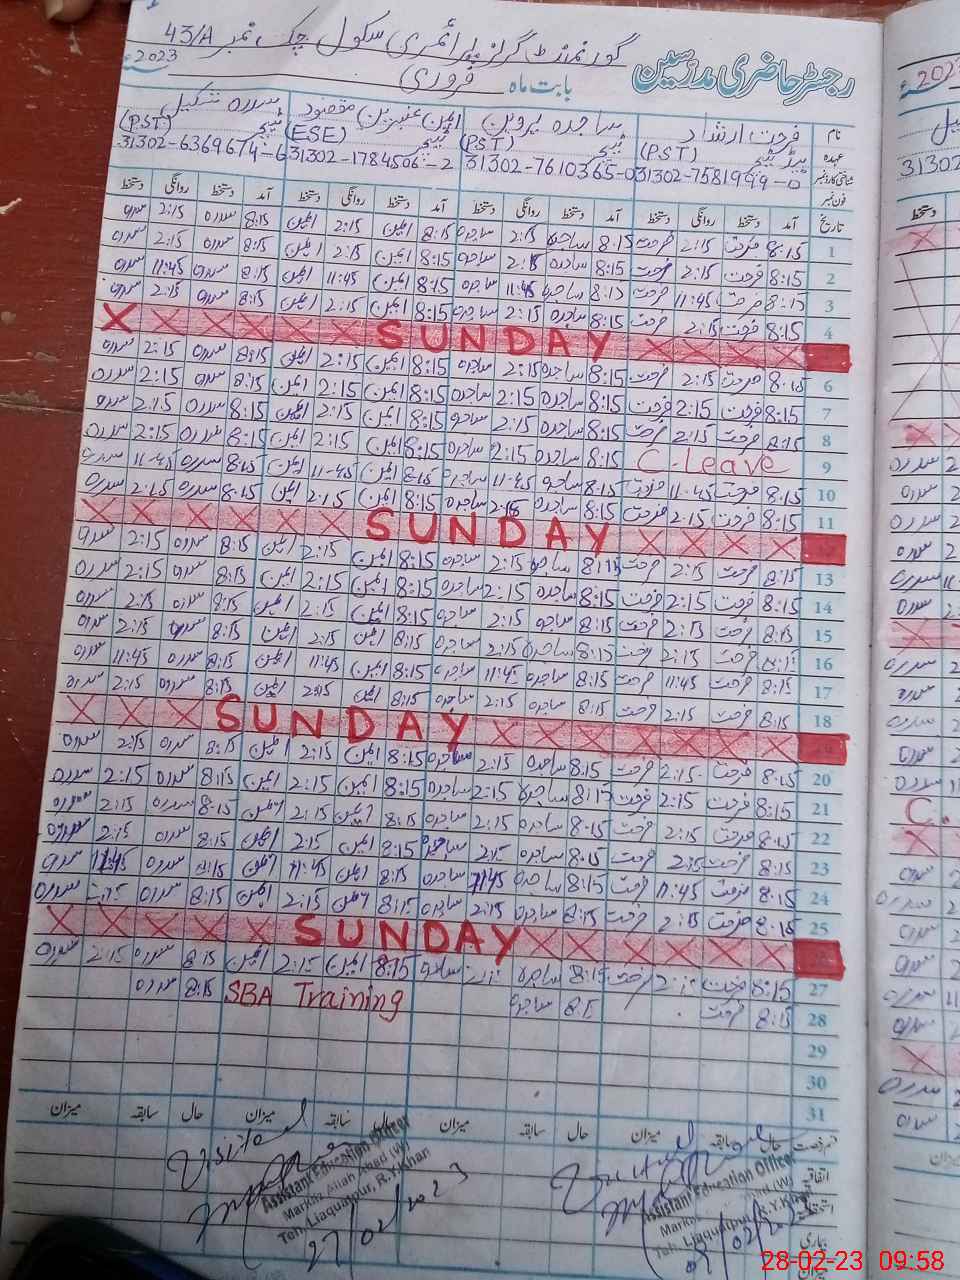 رجسٹر حاضری مدرسین
گورنمنٹ گرلز پرائمری سکول چک نمبر 43/A
بابت ماہ فروری 2023ء
نام فرحت ارشاد ساجدہ پروین ایمن عنبرین مقصود سدرہ شکیل
عہدہ ہیڈ ٹیچر (PST) ٹیچر (PST) ٹیچر (ESE) ٹیچر (PST)
شناختی کارڈ نمبر 31302-7581999-0 31302-7610365-0 31302-1784506-2 31302-6369674-6
فون نمبر
تاریخ آمد دستخط روانگی دستخط آمد دستخط روانگی دستخط آمد دستخط روانگی دستخط آمد دستخط روانگی دستخط
1 8:15 فرحت 2:15 فرحت 8:15 ساجدہ 2:15 ساجدہ 8:15 ایمن 2:15 ایمن 8:15 سدرہ 2:15 سدرہ
2 8:15 فرحت 2:15 فرحت 8:15 ساجدہ 2:15 ساجدہ 8:15 ایمن 2:15 ایمن 8:15 سدرہ 2:15 سدرہ
3 8:15 فرحت 11:45 فرحت 8:15 ساجدہ 11:45 ساجدہ 8:15 ایمن 11:45 ایمن 8:15 سدرہ 11:45 سدرہ
4 8:15 فرحت 2:15 فرحت 8:15 ساجدہ 2:15 ساجدہ 8:15 ایمن 2:15 ایمن 8:15 سدرہ 2:15 سدرہ
SUNDAY
6 8:15 فرحت 2:15 فرحت 8:15 ساجدہ 2:15 ساجدہ 8:15 ایمن 2:15 ایمن 8:15 سدرہ 2:15 سدرہ
7 8:15 فرحت 2:15 فرحت 8:15 ساجدہ 2:15 ساجدہ 8:15 ایمن 2:15 ایمن 8:15 سدرہ 2:15 سدرہ
8 8:15 فرحت 2:15 فرحت 8:15 ساجدہ 2:15 ساجدہ 8:15 ایمن 2:15 ایمن 8:15 سدرہ 2:15 سدرہ
9 C-Leave 8:15 ساجدہ 2:15 ساجدہ 8:15 ایمن 2:15 ایمن 8:15 سدرہ 2:15 سدرہ
10 8:15 فرحت 11:45 فرحت 8:15 ساجدہ 11:45 ساجدہ 8:15 ایمن 11-45 ایمن 8:15 سدرہ 11-45 سدرہ
11 8:15 فرحت 2:15 فرحت 8:15 ساجدہ 2:15 ساجدہ 8:15 ایمن 2:15 ایمن 8:15 سدرہ 2:15 سدرہ
SUNDAY
13 8:15 فرحت 2:15 فرحت 8:15 ساجدہ 2:15 ساجدہ 8:15 ایمن 2:15 ایمن 8:15 سدرہ 2:15 سدرہ
14 8:15 فرحت 2:15 فرحت 8:15 ساجدہ 2:15 ساجدہ 8:15 ایمن 2:15 ایمن 8:15 سدرہ 2:15 سدرہ
15 8:15 فرحت 2:15 فرحت 8:15 ساجدہ 2:15 ساجدہ 8:15 ایمن 2:15 ایمن 8:15 سدرہ 2:15 سدرہ
16 فرحت 2:15 فرحت 8:15 ساجدہ 2:15 ساجدہ 8:15 ایمن 2:15 ایمن 8:15 سدرہ 2:15 سدرہ
17 8:15 فرحت 11:45 فرحت 8:15 ساجدہ 11:45 ساجدہ 8:15 ایمن 11:45 ایمن 8:15 سدرہ 11:45 سدرہ
18 8:15 فرحت 2:15 فرحت 8:15 ساجدہ 2:15 ساجدہ 8:15 ایمن 2:15 ایمن 8:15 سدرہ 2:15 سدرہ
SUNDAY
20 8:15 فرحت 2:15 فرحت 8:15 ساجدہ 2:15 ساجدہ 8:15 ایمن 2:15 ایمن 8:15 سدرہ 2:15 سدرہ
21 8:15 فرحت 2:15 فرحت 8:15 ساجدہ 2:15 ساجدہ 8:15 ایمن 2:15 ایمن 8:15 سدرہ 2:15 سدرہ
22 8:15 فرحت 2:15 فرحت 8:15 ساجدہ 2:15 ساجدہ 8:15 ایمن 2:15 ایمن 8:15 سدرہ 2:15 سدرہ
23 8:15 فرحت 2:15 فرحت 8:15 ساجدہ 2:15 ساجدہ 8:15 ایمن 2:15 ایمن 8:15 سدرہ 2:15 سدرہ
24 8:15 فرحت 11:45 فرحت 8:15 ساجدہ 11:45 ساجدہ 8:15 ایمن 11:45 ایمن 8:15 سدرہ 11:45 سدرہ
25 8:15 فرحت 2:15 فرحت 8:15 ساجدہ 2:15 ساجدہ 8:15 ایمن 2:15 ایمن 8:15 سدرہ سدرہ
SUNDAY
27 8:15 فرحت فرحت 8:15 ساجدہ ساجدہ 8:15 ایمن 2:15 ایمن 8:15 سدرہ 2:15 سدرہ
28 8:15 فرحت 8:15 ساجدہ SBA Training 8:15 سدرہ
29
30
31
حال سابقہ میزان حال سابقہ میزان حال سابقہ میزان حال سابقہ میزان
اتفاقیہ
بیماری
میزان
Visited
Assistant Education Officer
Teh. Liaquatpur, R.Y.Khan
27/02/2023
Assistant Education Officer
Teh. Liaquatpur, R.Y.Khan
28-02-23 09:58